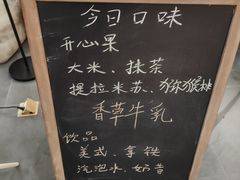 今日口味
开心果
大米、抹茶
提拉米苏、猕猴桃
香草牛乳
饮品
美式、拿铁
气泡水、奶昔